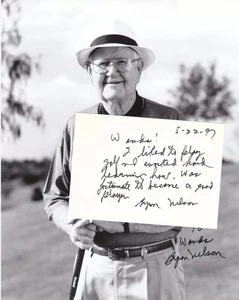 5-22-97
Wanda!
I liked to play
golf and worked hard
learning how. Was
fortunate to become a good
player.
Byron Nelson
To
Wanda
Byron Nelson